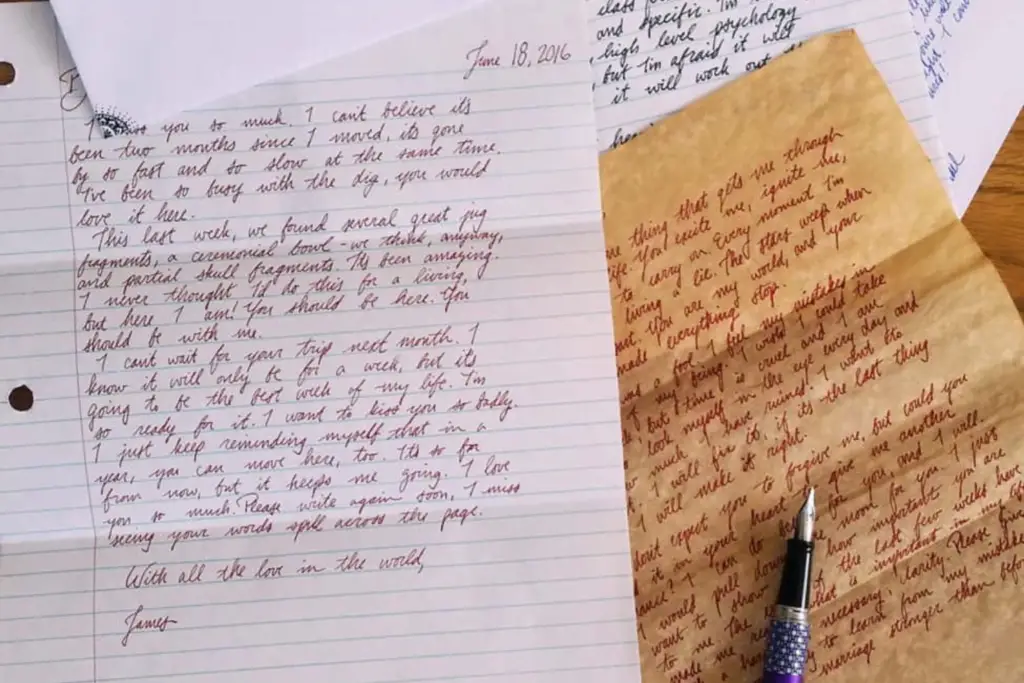 June 18, 2016
you so much. I can't believe it's
been two months since I moved, it's gone
by so fast and so slow at the same time.
I've been so busy with the dig, you would
love it here.
This last week, we found several great jug
fragments, a ceremonial bowl - we think, anyway,
and partial skull fragments. It's been amazing.
I never thought I'd do this for a living,
but here I am! You should be here. You
should be with me.
I can't wait for your trip next month. I
know it will only be for a week, but it's
going to be the best week of my life. I'm
so ready for it. I want to kiss you so badly.
I just keep reminding myself that in a
year, you can move here, too. It's so far
from now, but it keeps me going. I love
you so much. Please write again soon, I miss
seeing your words spill across the page.
With all the love in the world,
James
class
and specific. I'm
high level psychology
but I'm afraid it will
it will work out
thing that gets me through
life. You excite me, ignite me,
to carry on. Every moment I'm
living a lie. The stars weep when
You are my world, and your
made everything stop.
a fool. I feel my mistakes in
of my being. I wish I could take
but time is cruel and I am
look myself in the eye every day and
much I have ruined. I want to
I will fix it, if it's the last thing
I will make it right.
don't expect you to forgive me, but could you
it in your heart to give me another
I would do for you, and I will.
would pull down the moon for you. I just
want to show how important you are
to me. The last few weeks have
made me what is important in my life
necessary clarity. Please
to learn from my mistakes
marriage stronger than before